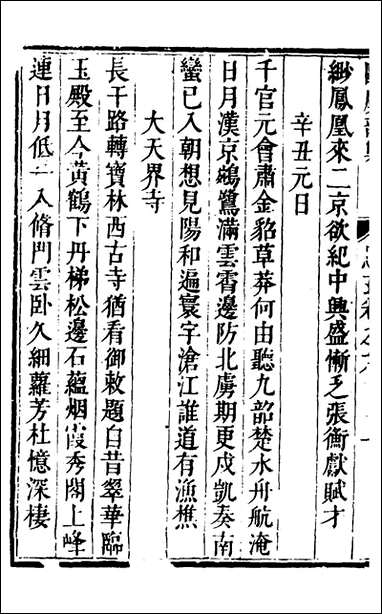 緲鳳凰來二京欲紀中興盛慚乏張衡獻賦才
辛丑元日
千官元會肅金貂草莽何由聽九韶楚水舟航淹
日月漢京鵷鷺滿雲霄邊防北虜期更戍凱奏南
蠻已入朝想見陽和遍寰宇滄江誰道有漁樵
大天界寺
長干路轉寶林西古寺猶看御敕題白昔翠華臨
玉殿至今黃鶴下丹梯松邊石蘊烟霞秀閣上峰
連日月低一入脩門雲臥久細蘿芳杜憶深棲